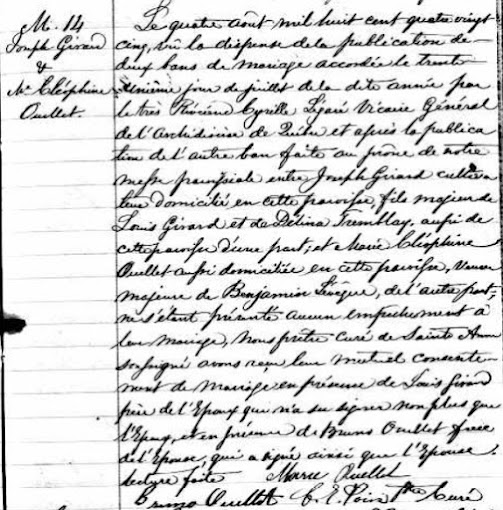 M. 14
Joseph Girard
&
Mie Cléophine
Ouellet.
Le quatre août mil huit cent quatre vingt
cinq, vu la dispense de la publication de
deux bans de mariage accordée le trente
unième jour de juillet de la dite année par
le très Révérend Cyrille Légaré Vicaire Général
de l'Archidiocèse de Québec et après la publica
tion de l'autre ban faite au prône de notre
messe paroissiale entre Joseph Girard cultiva
teur domicilié en cette paroisse, fils majeur de
Louis Girard et de Délina Tremblay, aussi de
cette paroisse d'une part; et Marie Cléophine
Ouellet aussi domiciliée en cette paroisse, veuve
majeure de Benjamin Lévêque, de l'autre part;
ne s'étant présenté aucun empêchement à
leur mariage, Nous prêtre curé de Sainte Anne
soussigné avons reçu leur mutuel consente-
ment de mariage en présence de Louis Girard
père de l'Epoux qui n'a su signer non plus que
l'Epoux, et en présence de Bruno Ouellet frère
de l'Epouse, qui a signé ainsi que l'Epouse.
lecture faite Marie Ouellet
Bruno Ouellet C. E. Poiré Ptre Curé